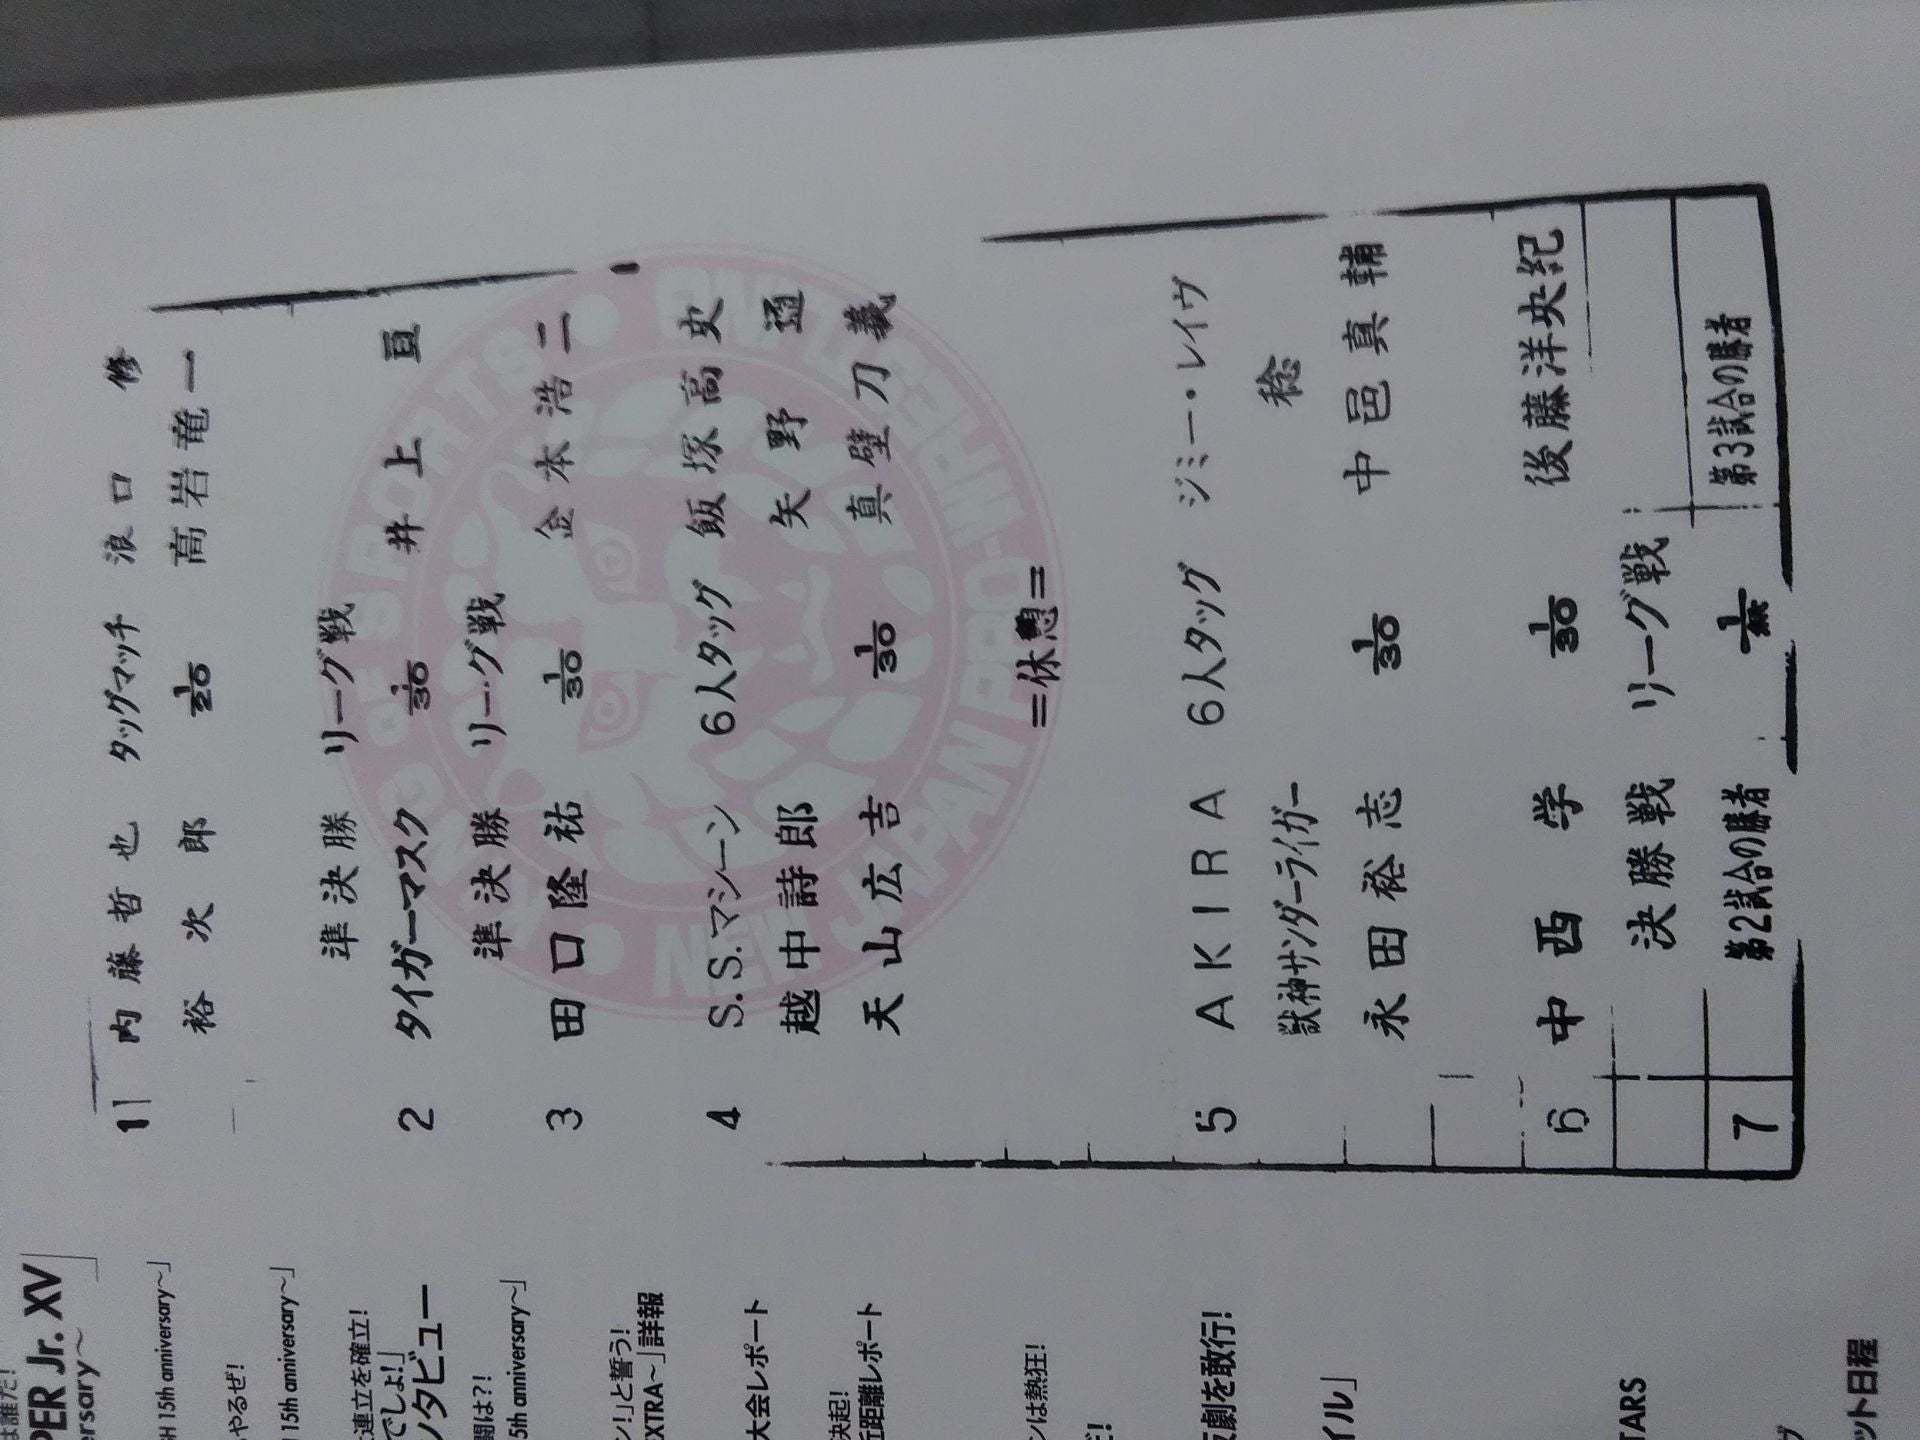 1 内藤哲也 タッグマッチ 浪口 修
裕次郎 1/20 高岩竜一
準決勝 リーグ戦
2 タイガーマスク 1/30 井上 亘
準決勝 リーグ戦
3 田口隆祐 1/30 金本浩二
4 S.S.マシーン 6人タッグ 飯塚高史
越中詩郎 矢野 通
天山広吉 1/30 真壁刀義
=休憩=
5 AKIRA 6人タッグ ジミー・レイヴ
獣神サンダーライガー 稔
永田裕志 1/30 中邑真輔
6 中西 学 1/30 後藤洋央紀
決勝戦 リーグ戦
7 第2試合の勝者 1/無 第3試合の勝者
KING OF SPORTS
NEW JAPAN PRO-WRESTLING
は誰だ!
PER Jr. XV
ersary〜」
H 15th anniversary〜」
やるぜ!
15th anniversary〜」
連立を確立!
でしょ!」
ンタビュー
闘は?!
5th anniversary〜」
ン!」と誓う!
EXTRA〜」詳報
大会レポート
決起!
近距離レポート
ンは熱狂!
だ!
劇を敢行!
イル」
TARS
ット日程